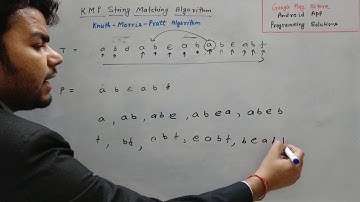 KMP String Matching Algorithm
Knuth-Morris-Pratt Algorithm
Google Play Store
Android App
Programming Solutions
T = a b d a b e a b a b e a b f
P = a b e a b f
a, ab, abe, abea, abeb
f, bf, abf, eabf, bea